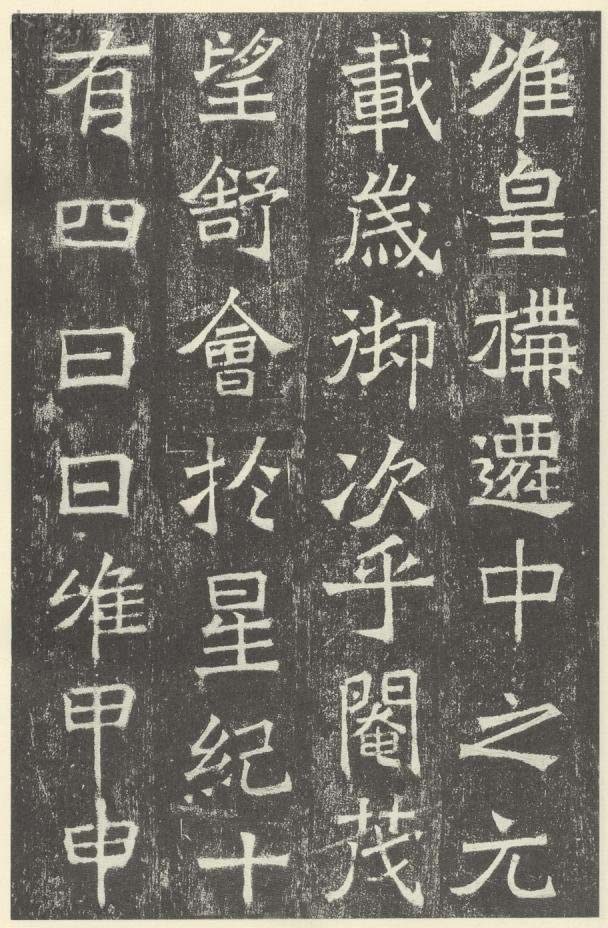 唯皇搆遷中之元
載歳御次乎閹茂
望舒會於星紀十
有四日日唯甲申